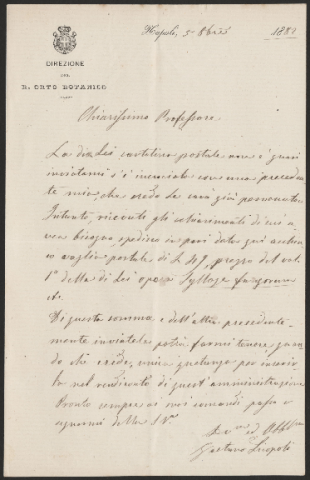 DIREZIONE
DEL
R. ORTO BOTANICO
Napoli, 5 8bre 1881
Chiarissimo Professore
La di Lei cartolina postale non è guari
inviatami s'è incrociata con una preceden-
te mia, che credo Le sarà già pervenuta.
Intanto, ricevute gli schiarimenti di cui a-
vea bisogna, spedisco in pari data qui anche
un vaglia postale di L 49, prezzo del vol.
1º della di Lei opera Sylloge fungorum
etc.
Di questa somma e dell'altra precedente-
mente inviatele potrà farmi tenere, quan-
do chè creda, unica quietanza per inserir-
la nel rendiconto di quest'amministrazione
Pronto sempre ai suoi comandi passo a
segnarmi della S. V.
Dev.mo ed Obbl.mo
Gaetano Licopoli